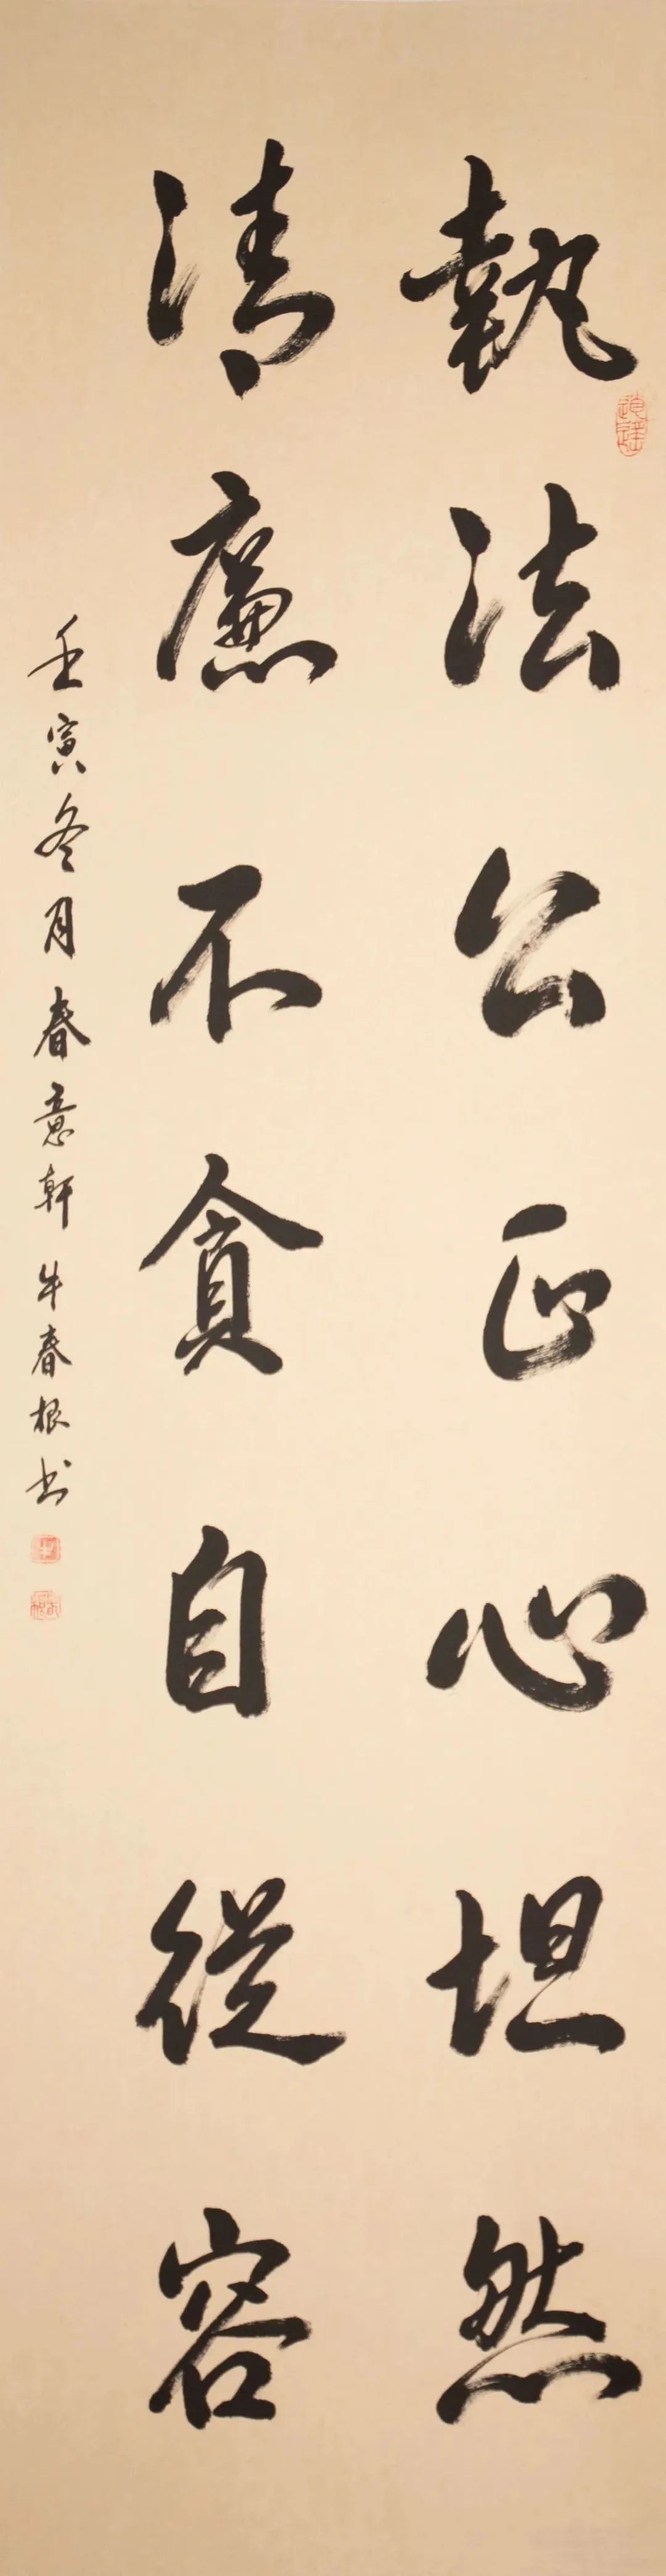 執法公正心坦然
清廉不貪自從容
壬寅冬月春意軒牛春根书